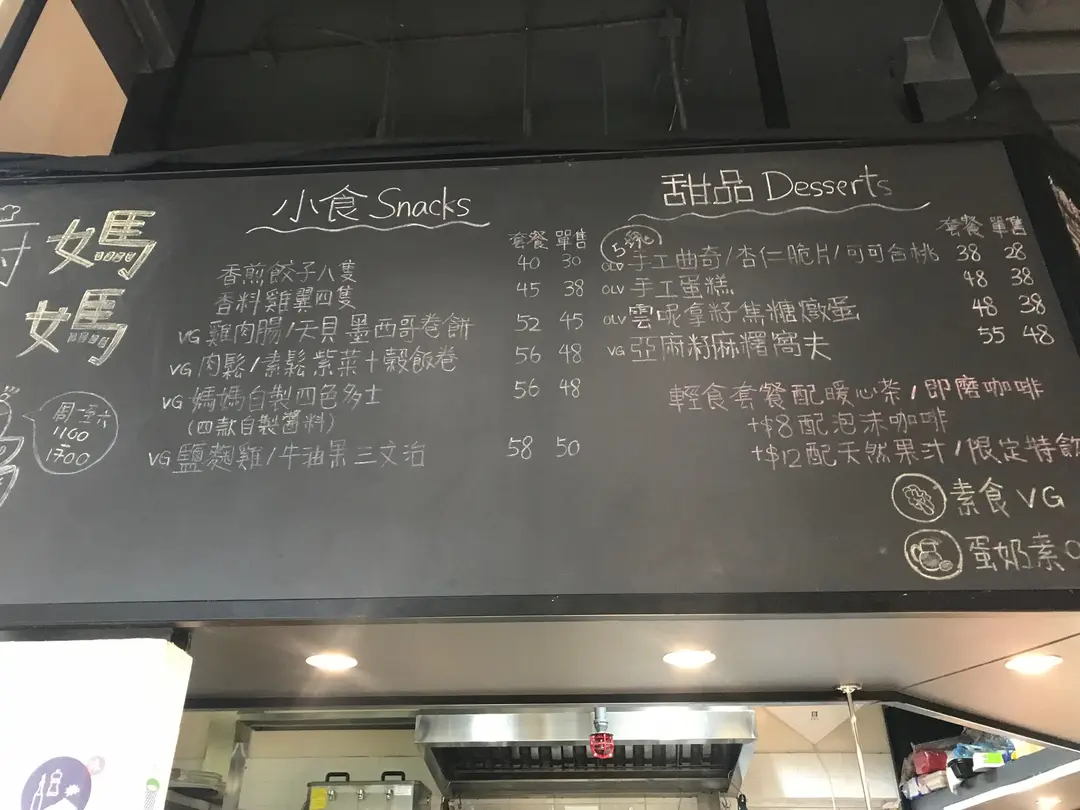 媽
媽
周一至六
1100
-
1700
小食 Snacks
套餐 單售
香煎餃子八隻 40 30
香料雞翼四隻 45 38
VG 雞肉腸/天貝 墨西哥卷餅 52 45
VG 肉鬆/素鬆 紫菜十穀飯卷 56 48
VG 媽媽自製四色多士 56 48
(四款自製醬料)
VG 鹽麴雞/牛油果 三文治 58 50
甜品 Desserts
套餐 單售
OLV 手工曲奇/杏仁脆片/可可合桃 38 28
OLV 手工蛋糕 48 38
OLV 雲呢拿籽焦糖燉蛋 48 38
VG 亞麻籽麻糬窩夫 55 48
輕食套餐配暖心茶/即磨咖啡
+$8配泡沫咖啡
+$12配天然果汁/限定特飲
素食 VG
蛋奶素